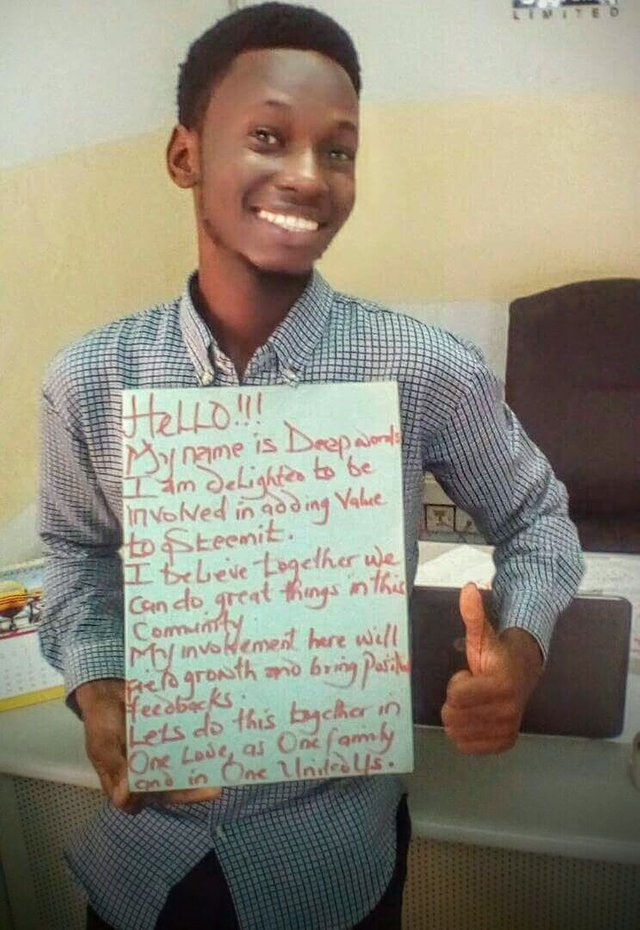 LIMITED
HeLLO!!!
My name is Deepwords
I am deLighted to be
involved in adding Value
to $teemit.
I beLieve together we
can do great things in this
Community.
My involvement here will
growth and bring Positive
feedbacks.
Lets do this together in
One Love, as One family
and in One Unitedus.